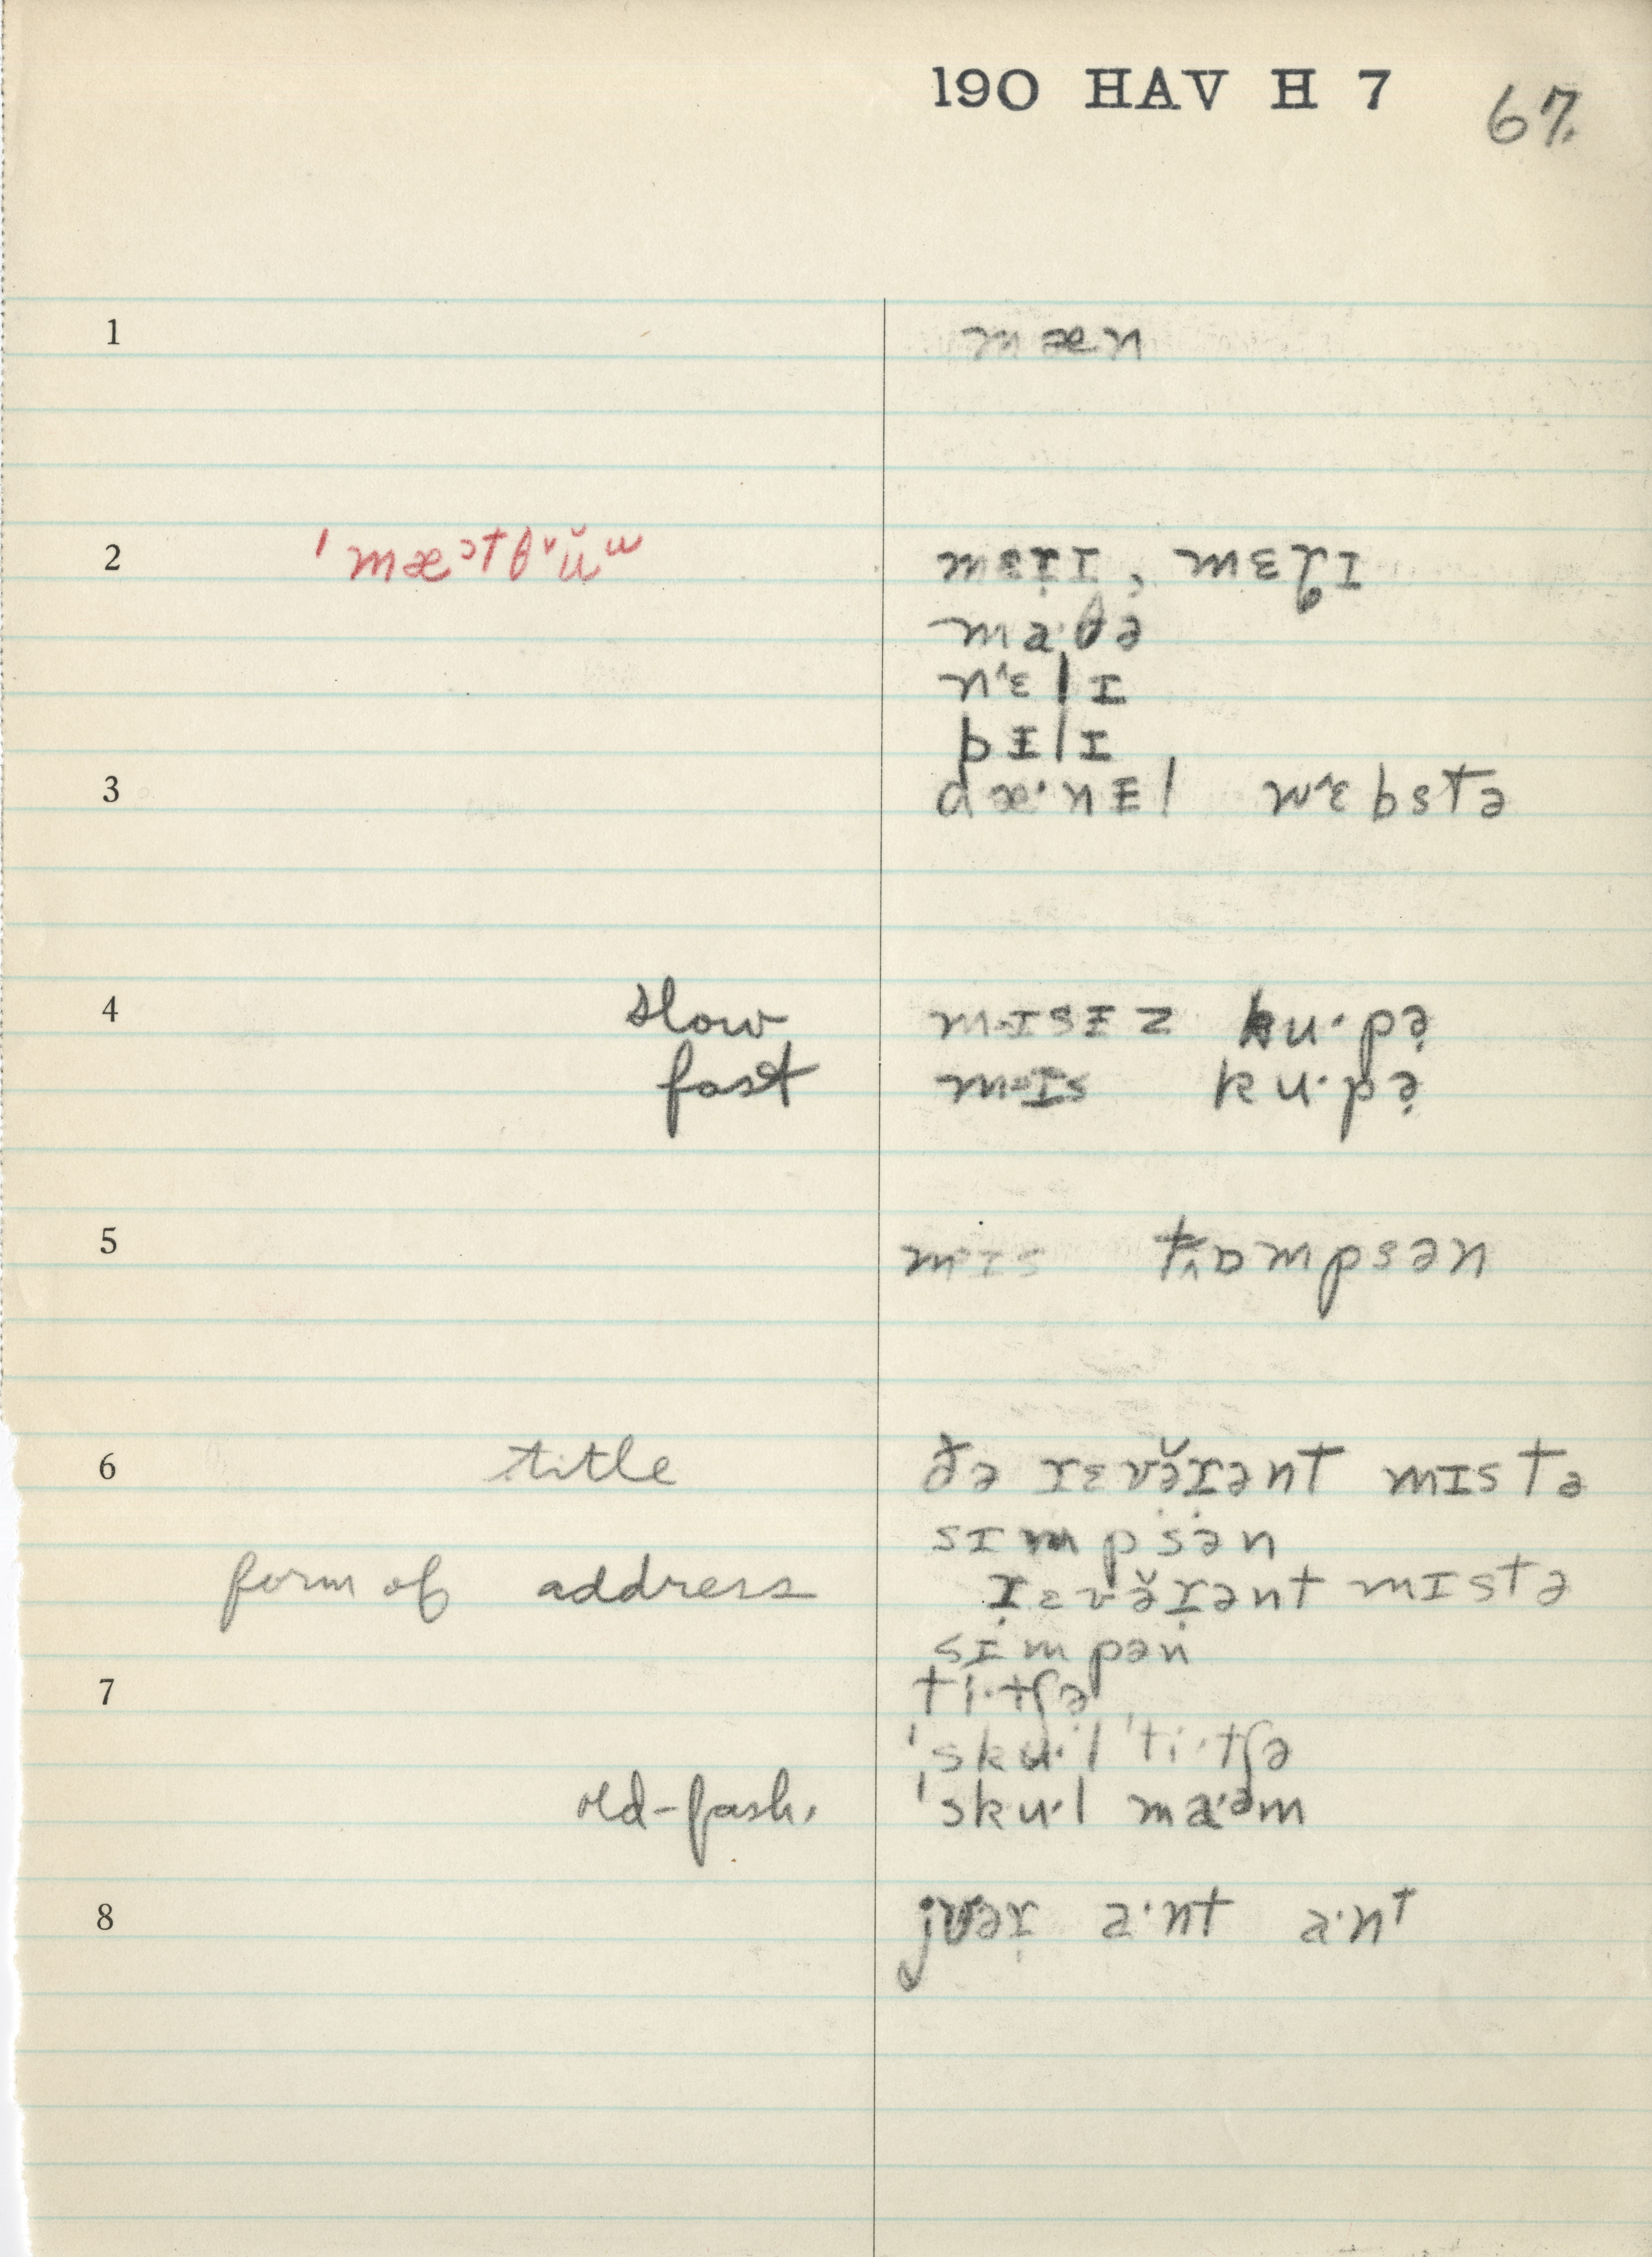 190 HAV H 7 67.
1 mæn
2 ˈmæᵓtθᵛŭᵚ mɛɪ̣ɪ, mɛɪ
ma·θə
nɛ˞lɪ
pɪlɪ
3 dæ·nɪl wɛbstə
4 slow mɪsɪz ku·pə̣
fast mɪs ku·pə̣
5 mɪs tɒmpsən
6 title ðə ɪɛvə̆ɪənt mɪstə
sɪmpsən
form of address ɪ̣ɛvə̆ɪ̣ənt mɪstə
sɪmpən
7 ti·tʃə
ˈsku·l ˈti·tʃə
old-fash. ˈsku·l ma·əm
8 jʊəɪ̣ a·nt a·nt